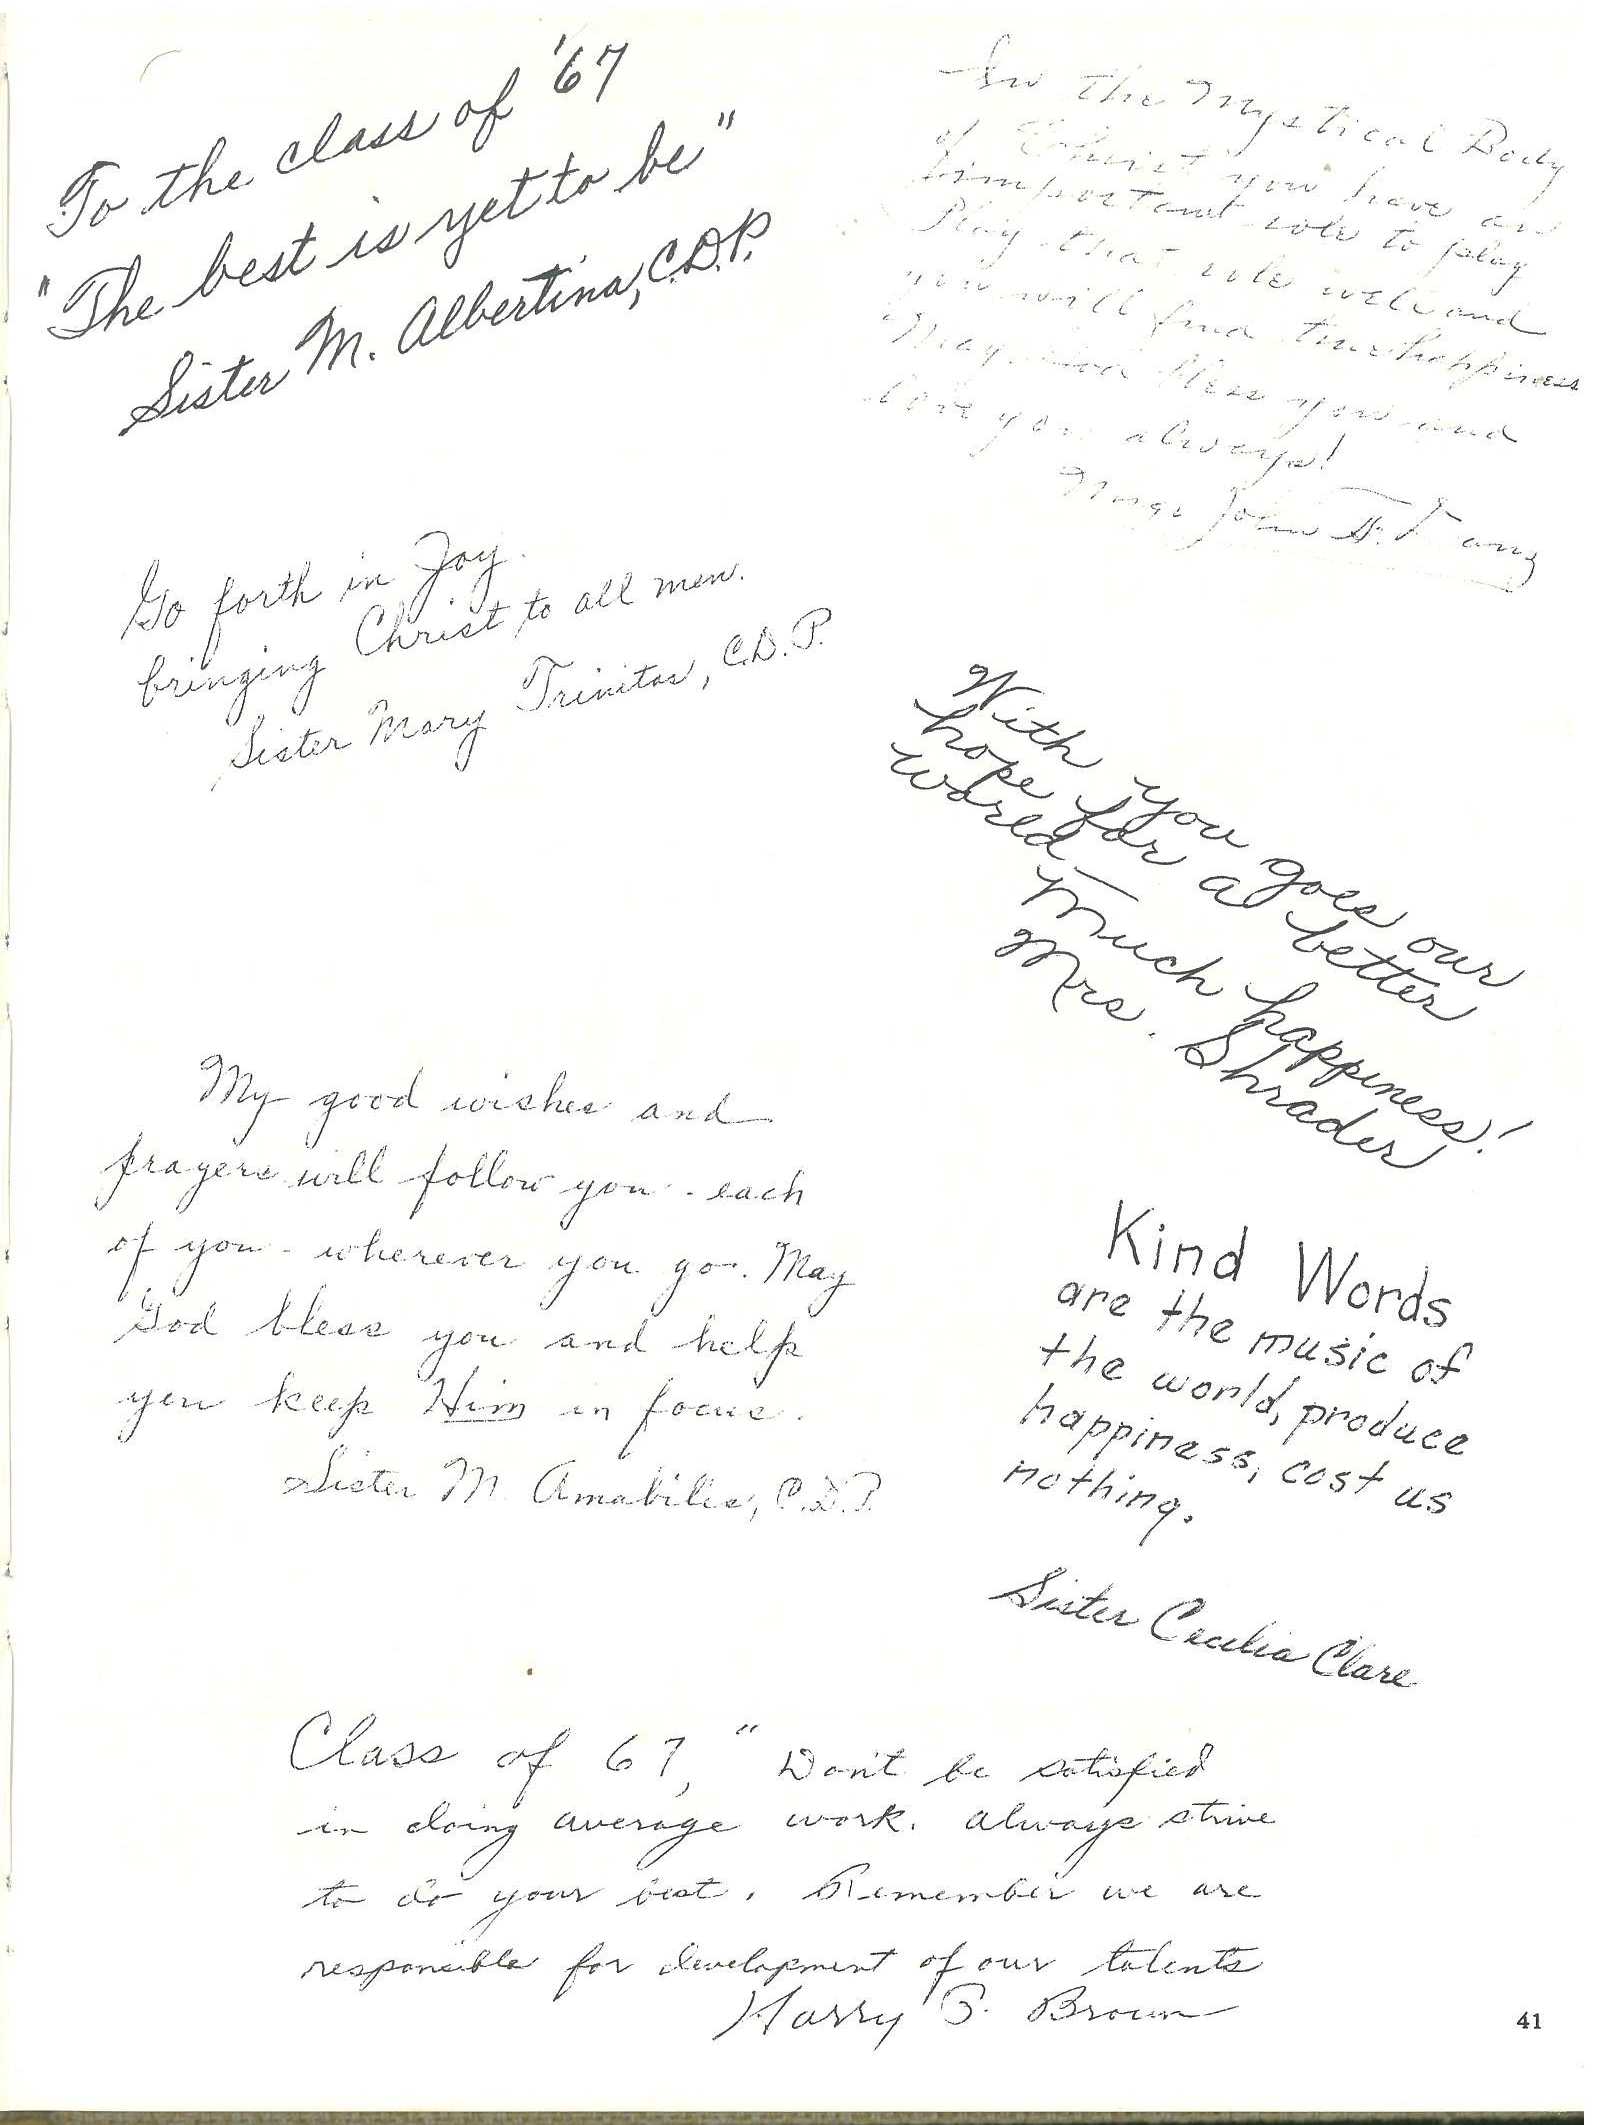 To the class of '67
"The best is yet to be"
Sister M. Albertina, C.D.P.
In the Mystical Body
of Christ you have an
important role to play
Play that role well and
you will find true happiness
May God bless you and
love you always!
Msgr John H.
Go forth in Joy
bringing Christ to all men.
Sister Mary Trinitas, C.D.P.
With you goes our
hope for a better
world –
Much happiness!
Mrs. Shrader
My good wishes and
prayers will follow you - each
of you - wherever you go. May
God bless you and help
you keep Him in focus.
Sister M. Amabilis, C.D.P.
Kind Words
are the music of
the world, produce
happiness, cost us
nothing.
Sister Cecilia Clare
Class of 67, "Don't be satisfied
in doing average work. Always strive
to do your best. Remember we are
responsible for development of our talents
Harry P. Brown
41